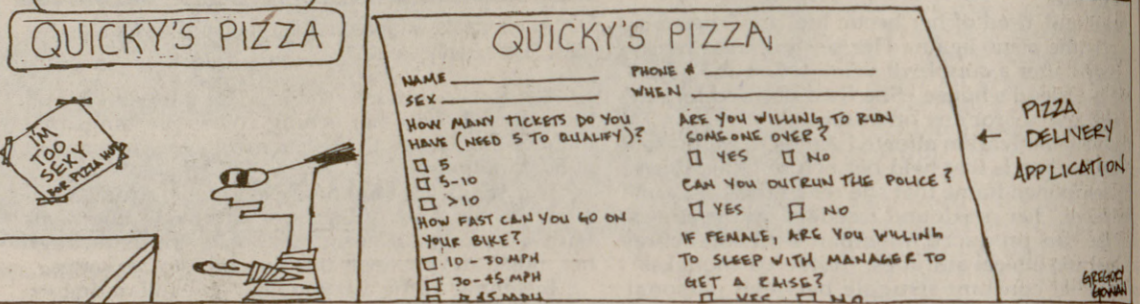 QUICKY'S PIZZA
I'M
TOO
SEXY
FOR PIZZA HUT
QUICKY'S PIZZA
NAME
SEX
HOW MANY TICKETS DO YOU
HAVE (NEED 5 TO QUALIFY)?
5
5-10
>10
HOW FAST CAN YOU GO ON
YOUR BIKE?
10-30 MPH
30-45 MPH
>45 MPH
PHONE #
WHEN
ARE YOU WILLING TO RUN
SOMEONE OVER?
YES NO
CAN YOU OUTRUN THE POLICE?
YES NO
IF FEMALE, ARE YOU WILLING
TO SLEEP WITH MANAGER TO
GET A RAISE?
YES NO
← PIZZA
DELIVERY
APPLICATION
GREGORY
GOWAN